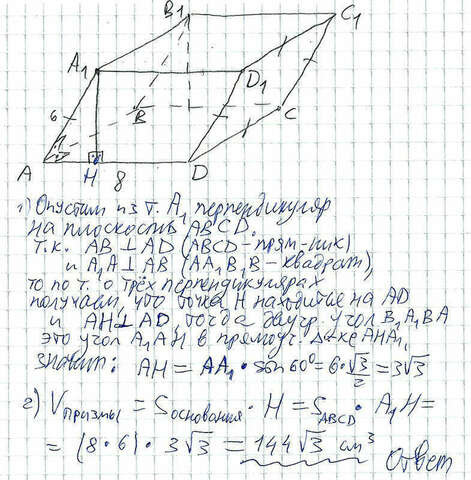 B₁
C₁
A₁
D₁
6
B
C
A
H
8
D
1) Опустим из т. A₁ перпендикуляр
на плоскость ABCD.
Т.к. AB ⊥ AD (ABCD - прям-ник)
и A₁A ⊥ AB (AA₁B₁B - квадрат),
то по т. о трёх перпендикулярах
получаем, что точка H находится на AD
и AH ⊥ AD, тогда двугр. угол B₁A₁BA
это угол A₁AH в прямоуг. Δ-ке AHA₁,
значит: AH = AA₁ · sin 60° = 6 · √3/2 = 3√3
2) Vпризмы = Sоснования · H = S_ABCD · A₁H =
= (8 · 6) · 3√3 = 144√3 см³ Ответ